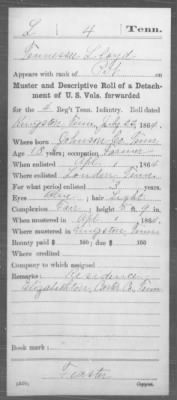 L | 4 | Tenn.
Tennessee Lloyd
Appears with rank of Pvt on
Muster and Descriptive Roll of a Detachment of U. S. Vols. forwarded
for the 4 Reg't Tenn. Infantry. Roll dated
Kingston Tenn July 25, 1864.
Where born Johnson Co Tenn
Age 18 years; occupation Farmer
When enlisted Apl 1, 1864
Where enlisted Loudon Tenn
For what period enlisted 3 years.
Eyes ; hair Light
Complexion Fair; height 5 ft. in.
When mustered in Apl 1, 1864.
Where mustered in Kingston Tenn
Bounty paid $ 100; due $ 100
Where credited
Company to which assigned
Remarks: Residence
Elizabethton, Carter Co. Tenn
Book mark:
Feaster
(339) Copyist.